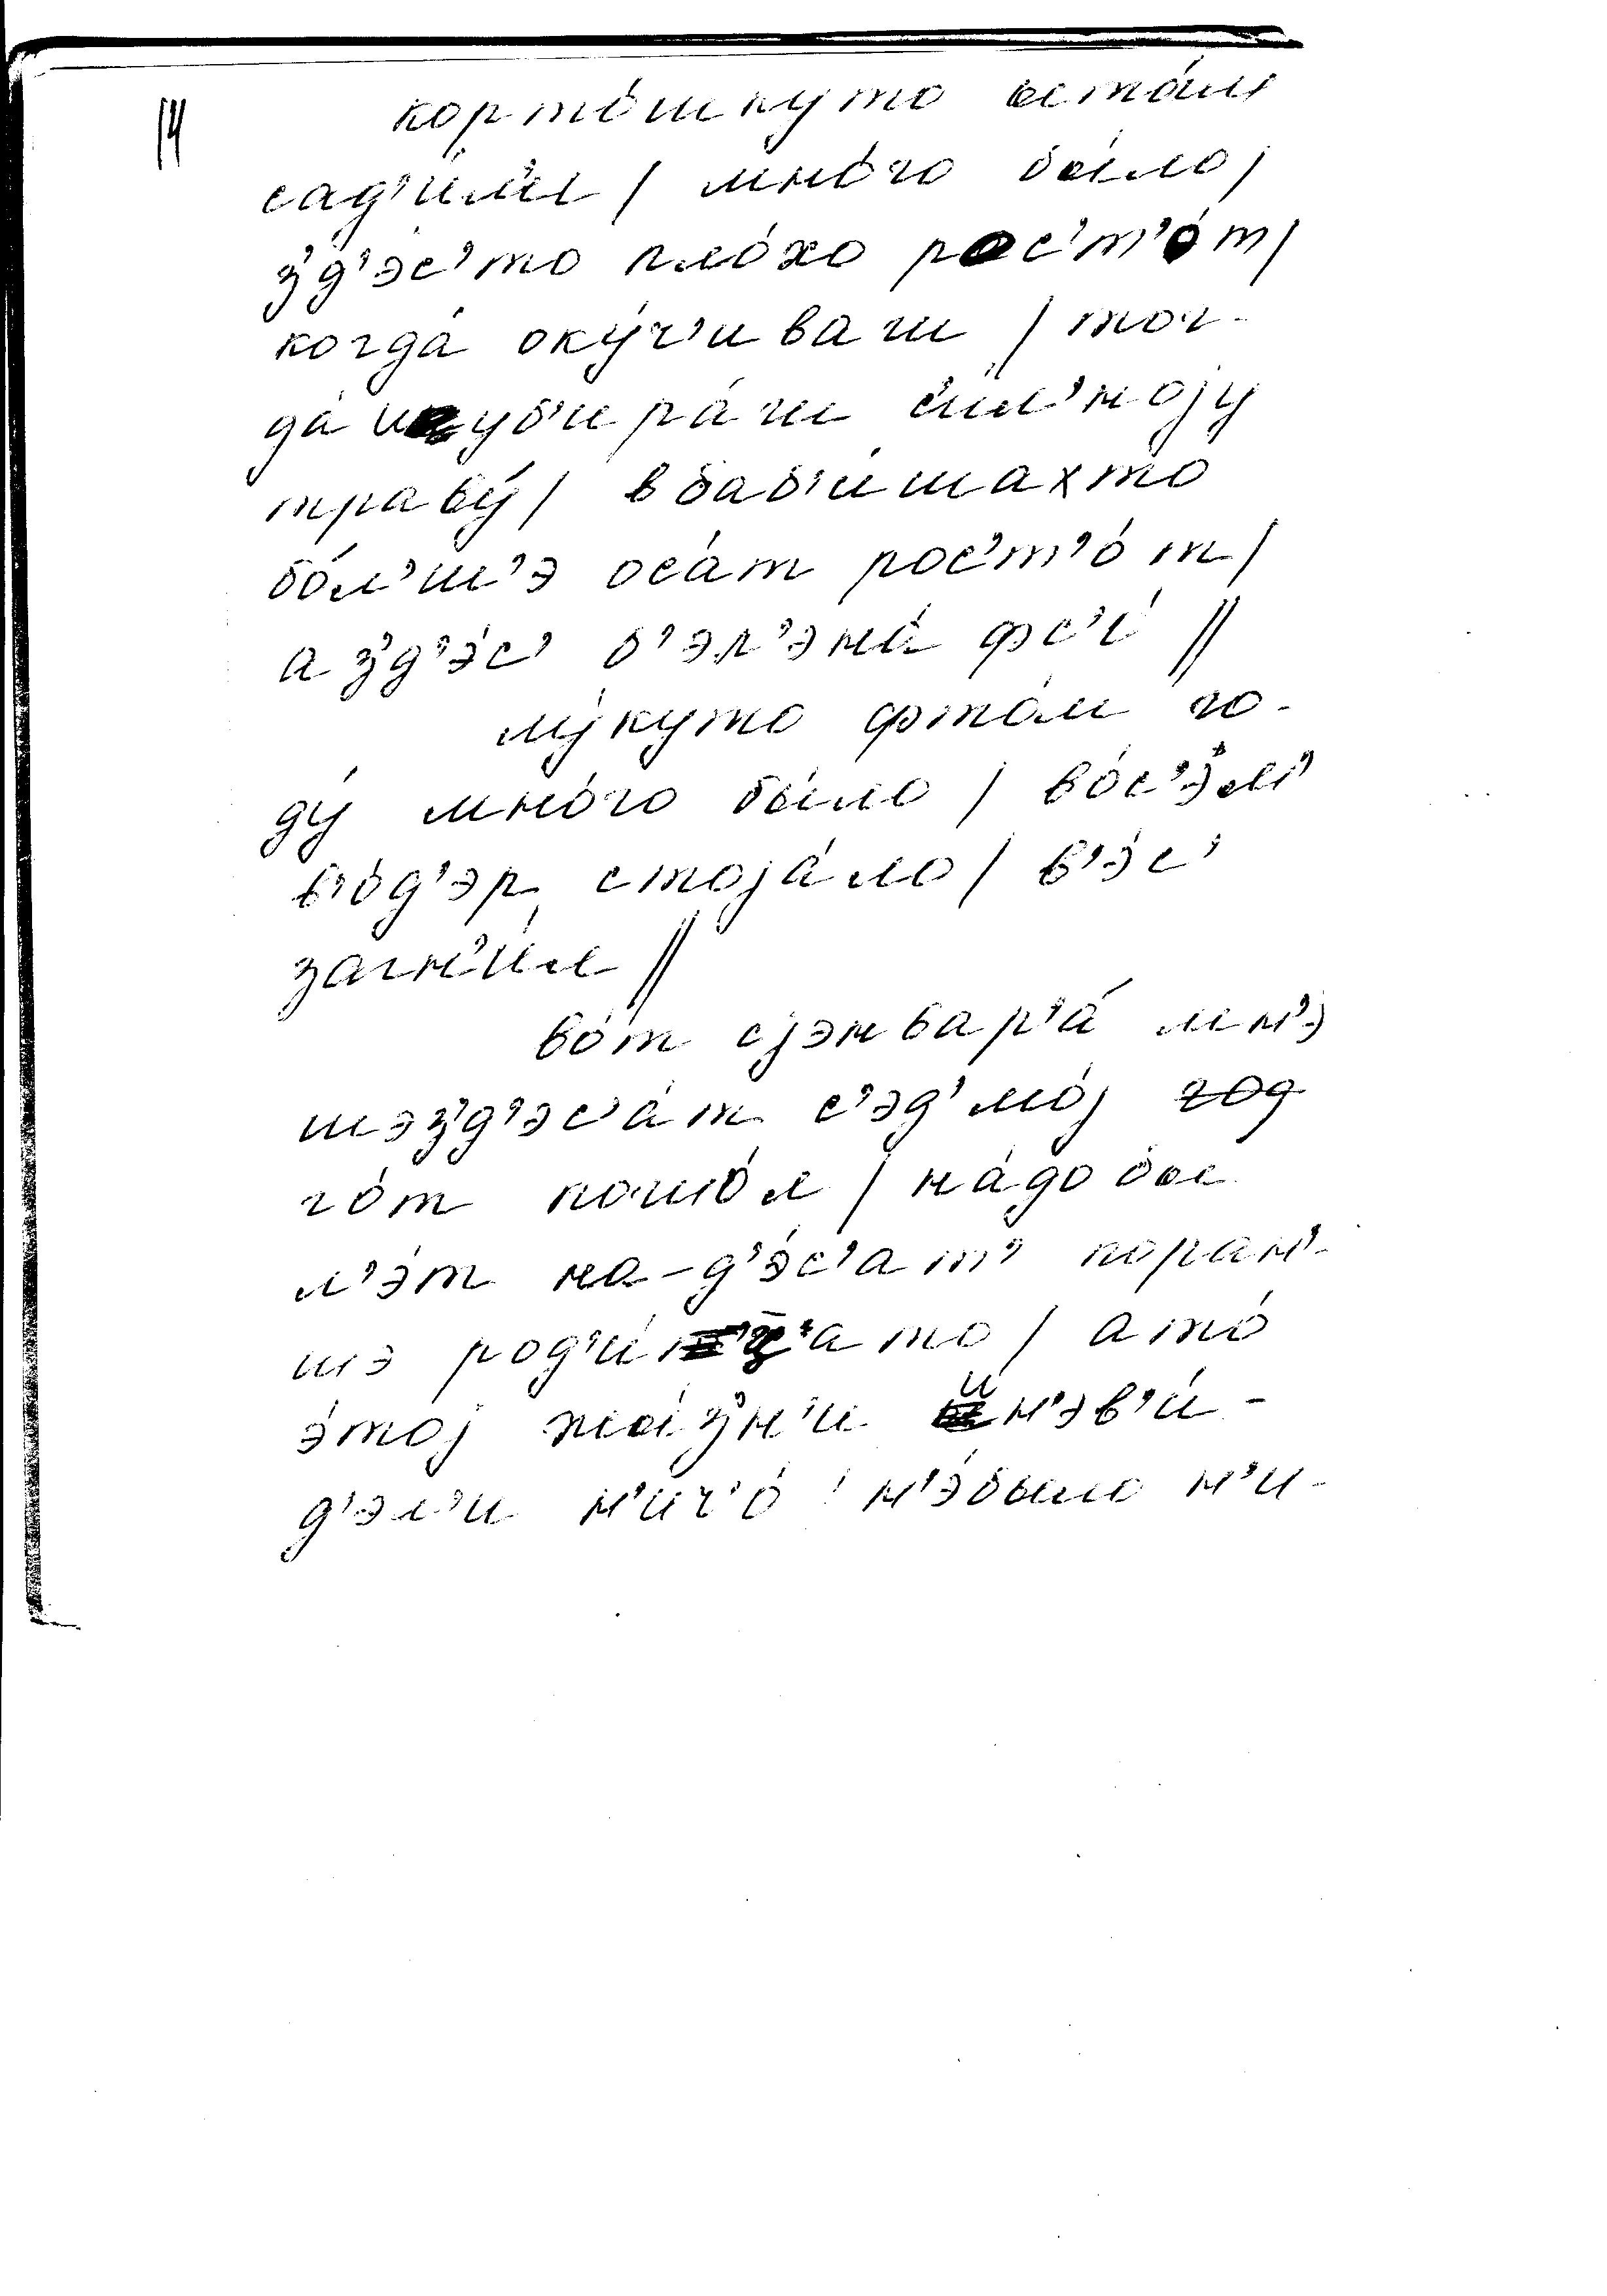 14
карто́шкуто
сад'и́л'и / мно́го бы́ло /
з'д'э́с'то пло́хо рос'т'о́т /
когда́ оку́ч'иваш / тог-
да́ и уб'ира́ш с'и́л'ноjу
траву́ / в баб'и́шахто
бо́л'ш'э оса́т рос'т'о́т /
а з'д'э́с' фс'и́ //
лу́куто фтом го-
ду́ мно́го бы́ло / во́с'эм'
в'о́д'эр стоjа́ло / в'э́с'
загн'и́л //
во́т сjэнвар'а́ мн'э
шэз'д'эс'а́т с'эд'мо́j год
го́т пошо́л / на́до бы
л'э́т на-д'э́с'ат' поран'-
шэ род'и́ц'ато / а то́
э́тоj жы́з'н'и и н'эв'и́-
д'эл'и н'ич'о́ / н'э́было н'и-